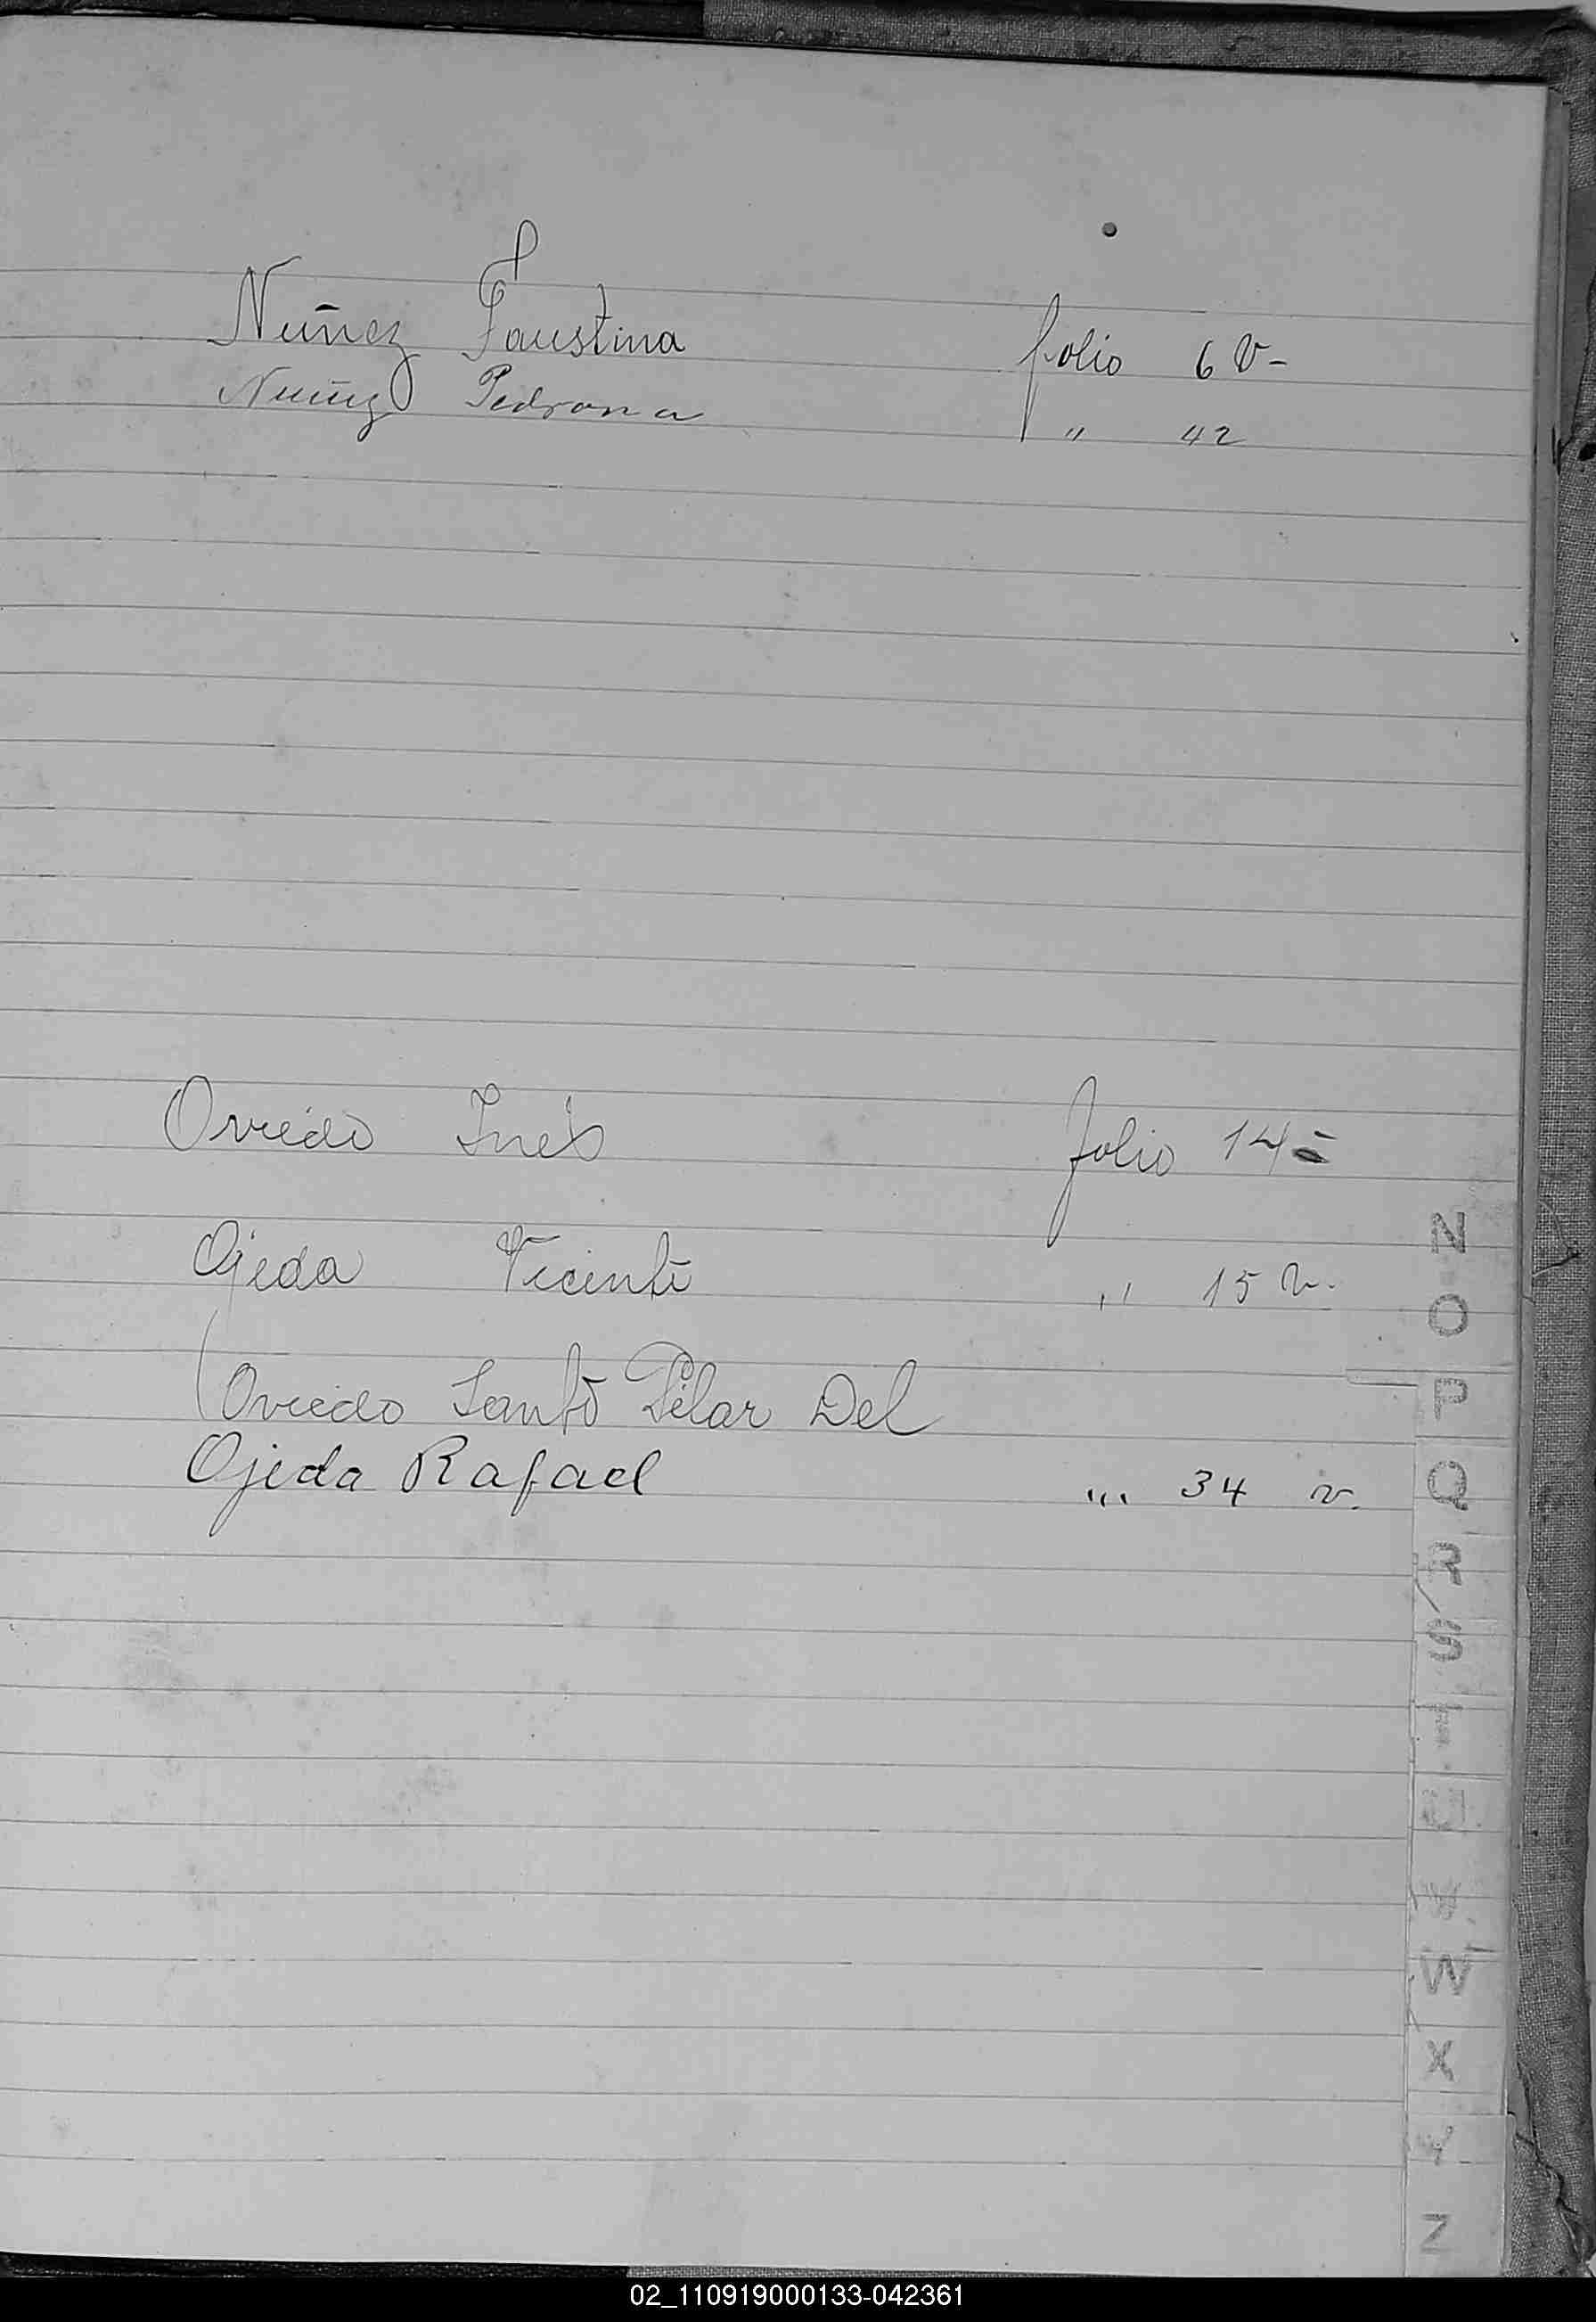 Nuñez Faustina folio 6 v-
Nuñez Pedrona " 42
Oviedo Inés folio 14
Ojeda Vicente " 15 v.
Oviedo Santo Pilar Del
Ojeda Rafael ,,, 34 v.
N
O
P
Q
R
S
T
U
V
W
X
Y
Z
02_110919000133-042361